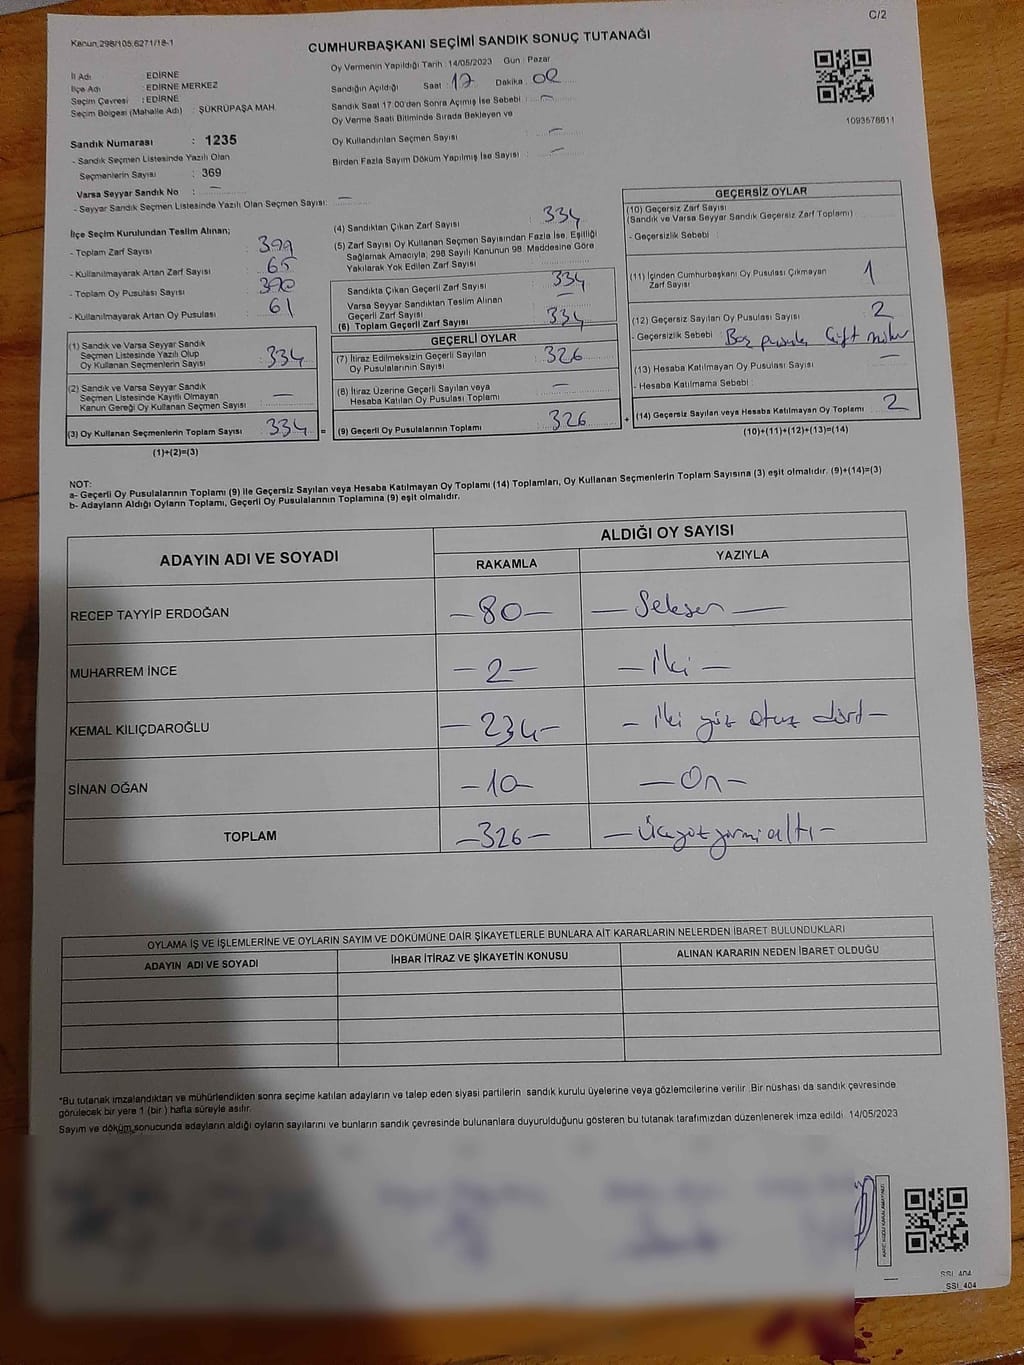 C/2
Kanun;298/105,6271/18-1
CUMHURBAŞKANI SEÇİMİ SANDIK SONUÇ TUTANAĞI
İl Adı : EDİRNE
İlçe Adı : EDİRNE MERKEZ
Seçim Çevresi : EDİRNE
Seçim Bölgesi (Mahalle Adı) : ŞÜKRÜPAŞA MAH.
Oy Vermenin Yapıldığı Tarih : 14/05/2023 Gün : Pazar
Sandığın Açıldığı Saat : 17 Dakika : 02
Sandık Saat 17:00'den Sonra Açımış İse Sebebi : —
Oy Verme Saati Bitiminde Sırada Bekleyen ve
Oy Kullandırılan Seçmen Sayısı : —
Birden Fazla Sayım Döküm Yapılmış İse Sayısı : —
1093578611
Sandık Numarası : 1235
- Sandık Seçmen Listesinde Yazılı Olan
Seçmenlerin Sayısı : 369
Varsa Seyyar Sandık No : —
- Seyyar Sandık Seçmen Listesinde Yazılı Olan Seçmen Sayısı: —
İlçe Seçim Kurulundan Teslim Alınan;
- Toplam Zarf Sayısı : 399
- Kullanılmayarak Artan Zarf Sayısı : 65
- Toplam Oy Pusulası Sayısı :
- Kullanılmayarak Artan Oy Pusulası : 61
(1) Sandık ve Varsa Seyyar Sandık
Seçmen Listesinde Yazılı Olup
Oy Kullanan Seçmenlerin Sayısı : 334
(2) Sandık ve Varsa Seyyar Sandık
Seçmen Listesinde Kayıtlı Olmayan
Kanun Gereği Oy Kullanan Seçmen Sayısı : —
(3) Oy Kullanan Seçmenlerin Toplam Sayısı : 334 =
(1)+(2)=(3)
(4) Sandıktan Çıkan Zarf Sayısı : 334
(5) Zarf Sayısı Oy Kullanan Seçmen Sayısından Fazla İse, Eşitliği
Sağlamak Amacıyla, 298 Sayılı Kanunun 98. Maddesine Göre
Yakılarak Yok Edilen Zarf Sayısı :
Sandıkta Çıkan Geçerli Zarf Sayısı : 334
Varsa Seyyar Sandıktan Teslim Alınan
Geçerli Zarf Sayısı : —
(6) Toplam Geçerli Zarf Sayısı : 334
GEÇERLİ OYLAR
(7) İtiraz Edilmeksizin Geçerli Sayılan
Oy Pusulalarının Sayısı : 326
(8) İtiraz Üzerine Geçerli Sayılan veya
Hesaba Katılan Oy Pusulası Toplamı : —
(9) Geçerli Oy Pusulalarının Toplamı : 326 +
GEÇERSİZ OYLAR
(10) Geçersiz Zarf Sayısı
(Sandık ve Varsa Seyyar Sandık Geçersiz Zarf Toplamı) :
- Geçersizlik Sebebi :
(11) İçinden Cumhurbaşkanı Oy Pusulası Çıkmayan
Zarf Sayısı : 1
(12) Geçersiz Sayılan Oy Pusulası Sayısı : 2
- Geçersizlik Sebebi : Boş pusula Çift mühür
(13) Hesaba Katılmayan Oy Pusulası Sayısı : —
- Hesaba Katılmama Sebebi :
(14) Geçersiz Sayılan veya Hesaba Katılmayan Oy Toplamı : 2
(10)+(11)+(12)+(13)=(14)
NOT:
a- Geçerli Oy Pusulalarının Toplamı (9) ile Geçersiz Sayılan veya Hesaba Katılmayan Oy Toplamı (14) Toplamları, Oy Kullanan Seçmenlerin Toplam Sayısına (3) eşit olmalıdır. (9)+(14)=(3)
b- Adayların Aldığı Oyların Toplamı, Geçerli Oy Pusulalarının Toplamına (9) eşit olmalıdır.
ADAYIN ADI VE SOYADI
ALDIĞI OY SAYISI
RAKAMLA YAZIYLA
RECEP TAYYİP ERDOĞAN —80— —Seksen—
MUHARREM İNCE —2— —İki—
KEMAL KILIÇDAROĞLU —234— —iki yüz otuz dört—
SİNAN OĞAN —10— —On—
TOPLAM —326— —Üçyüz yirmi altı—
OYLAMA İŞ VE İŞLEMLERİNE VE OYLARIN SAYIM VE DÖKÜMÜNE DAİR ŞİKAYETLERLE BUNLARA AİT KARARLARIN NELERDEN İBARET BULUNDUKLARI
ADAYIN ADI VE SOYADI İHBAR İTİRAZ VE ŞİKAYETİN KONUSU ALINAN KARARIN NEDEN İBARET OLDUĞU
*Bu tutanak imzalandıktan ve mühürlendikten sonra seçime katılan adayların ve talep eden siyasi partilerin sandık kurulu üyelerine veya gözlemcilerine verilir. Bir nüshası da sandık çevresinde
görülecek bir yere 1 (bir ) hafta süreyle asılır.
Sayım ve döküm sonucunda adayların aldığı oyların sayılarını ve bunların sandık çevresinde bulunanlara duyurulduğunu gösteren bu tutanak tarafımızdan düzenlenerek imza edildi. 14/05/2023
KARE KODU KARALAMAYINIZ!
SSI_404
SSI_404